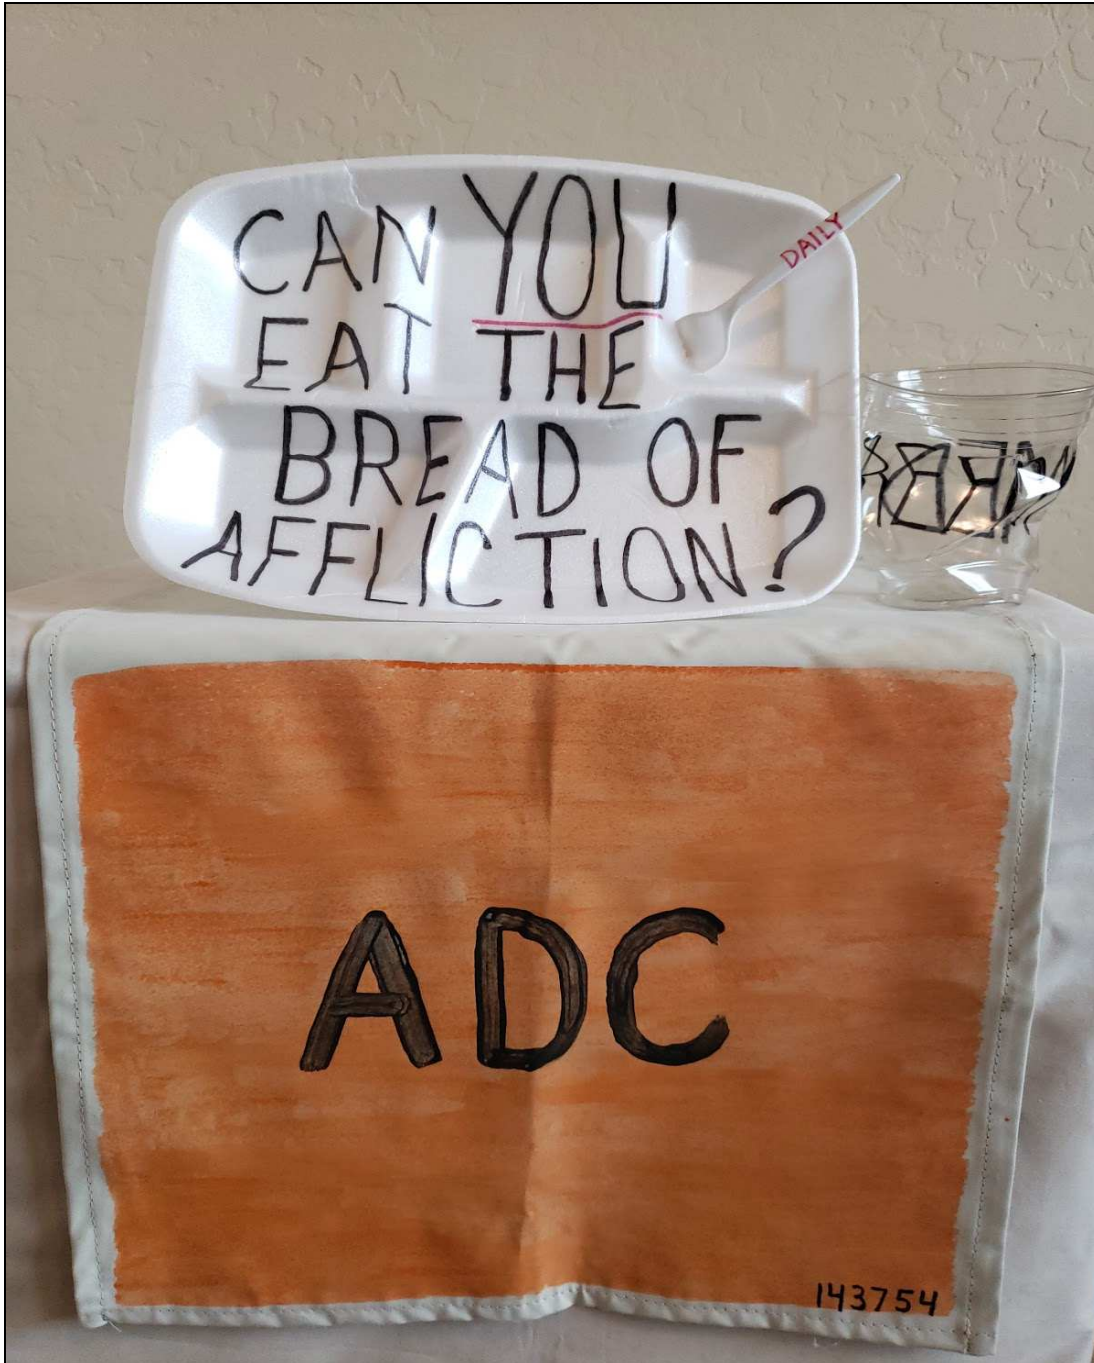 CAN YOU
EAT THE
BREAD OF
AFFLICTION?
DAILY
ADC
143754